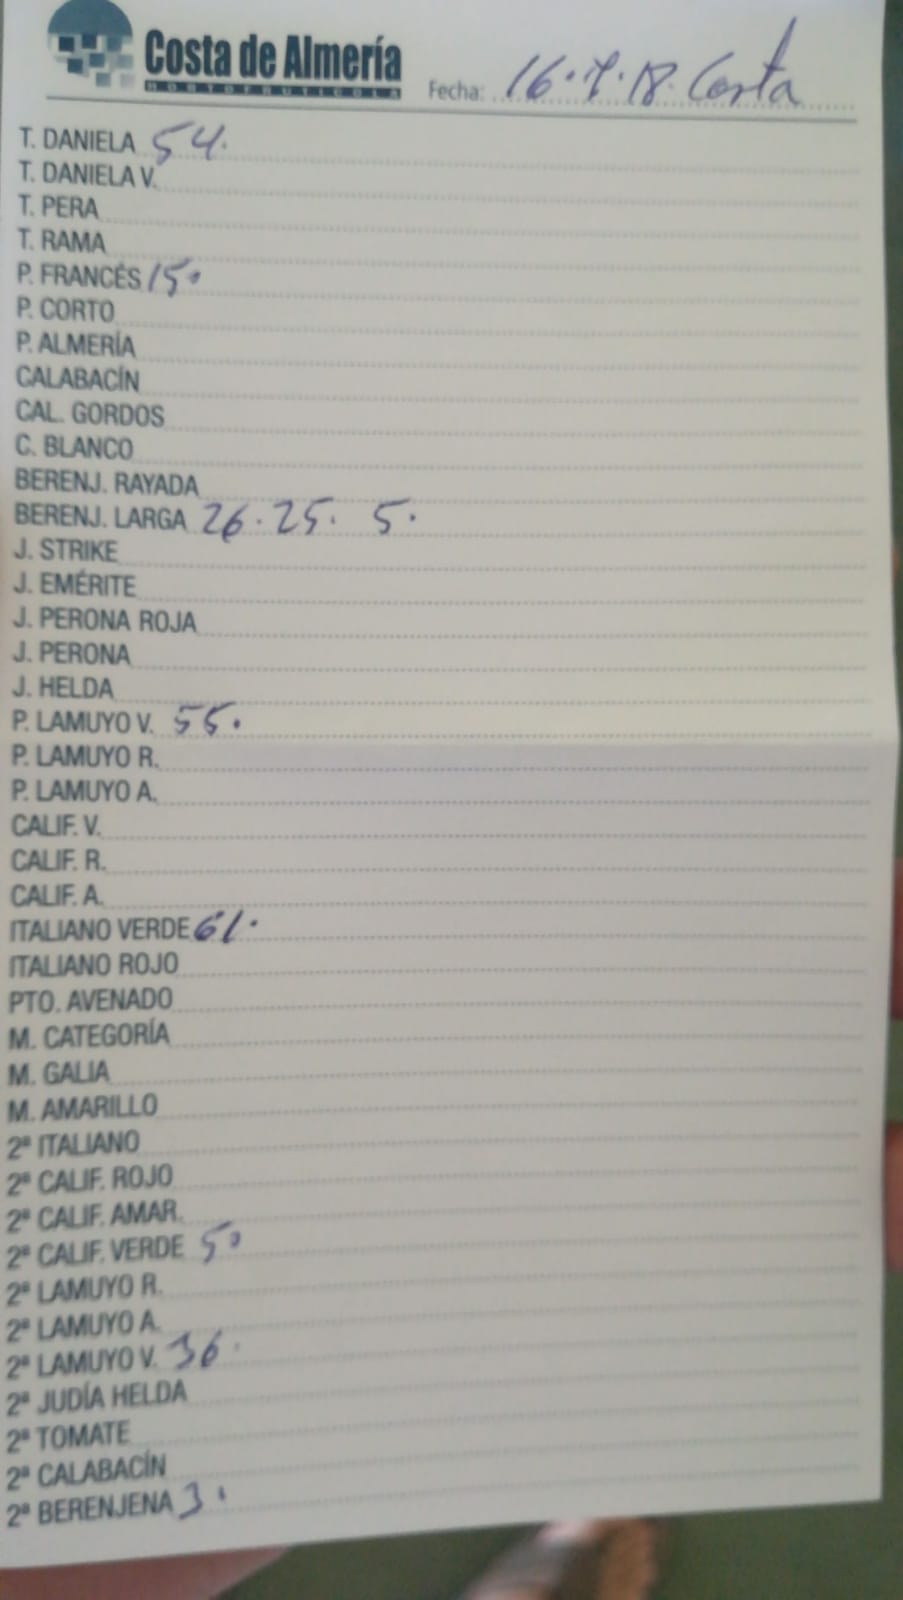 Costa de Almería
HORTOFRUTICOLA
Fecha: 16.7.18. Costa
T. DANIELA 54.
T. DANIELA V.
T. PERA
T. RAMA
P. FRANCÉS 15.
P. CORTO
P. ALMERÍA
CALABACÍN
CAL. GORDOS
C. BLANCO
BERENJ. RAYADA
BERENJ. LARGA 26. 25. 5.
J. STRIKE
J. EMÉRITE
J. PERONA ROJA
J. PERONA
J. HELDA
P. LAMUYO V. 55.
P. LAMUYO R.
P. LAMUYO A.
CALIF. V.
CALIF. R.
CALIF. A.
ITALIANO VERDE 61.
ITALIANO ROJO
PTO. AVENADO
M. CATEGORÍA
M. GALIA
M. AMARILLO
2ª ITALIANO
2ª CALIF. ROJO
2ª CALIF. AMAR.
2ª CALIF. VERDE
2ª LAMUYO R.
2ª LAMUYO A.
2ª LAMUYO V. 36.
2ª JUDÍA HELDA
2ª TOMATE
2ª CALABACÍN
2ª BERENJENA 3.